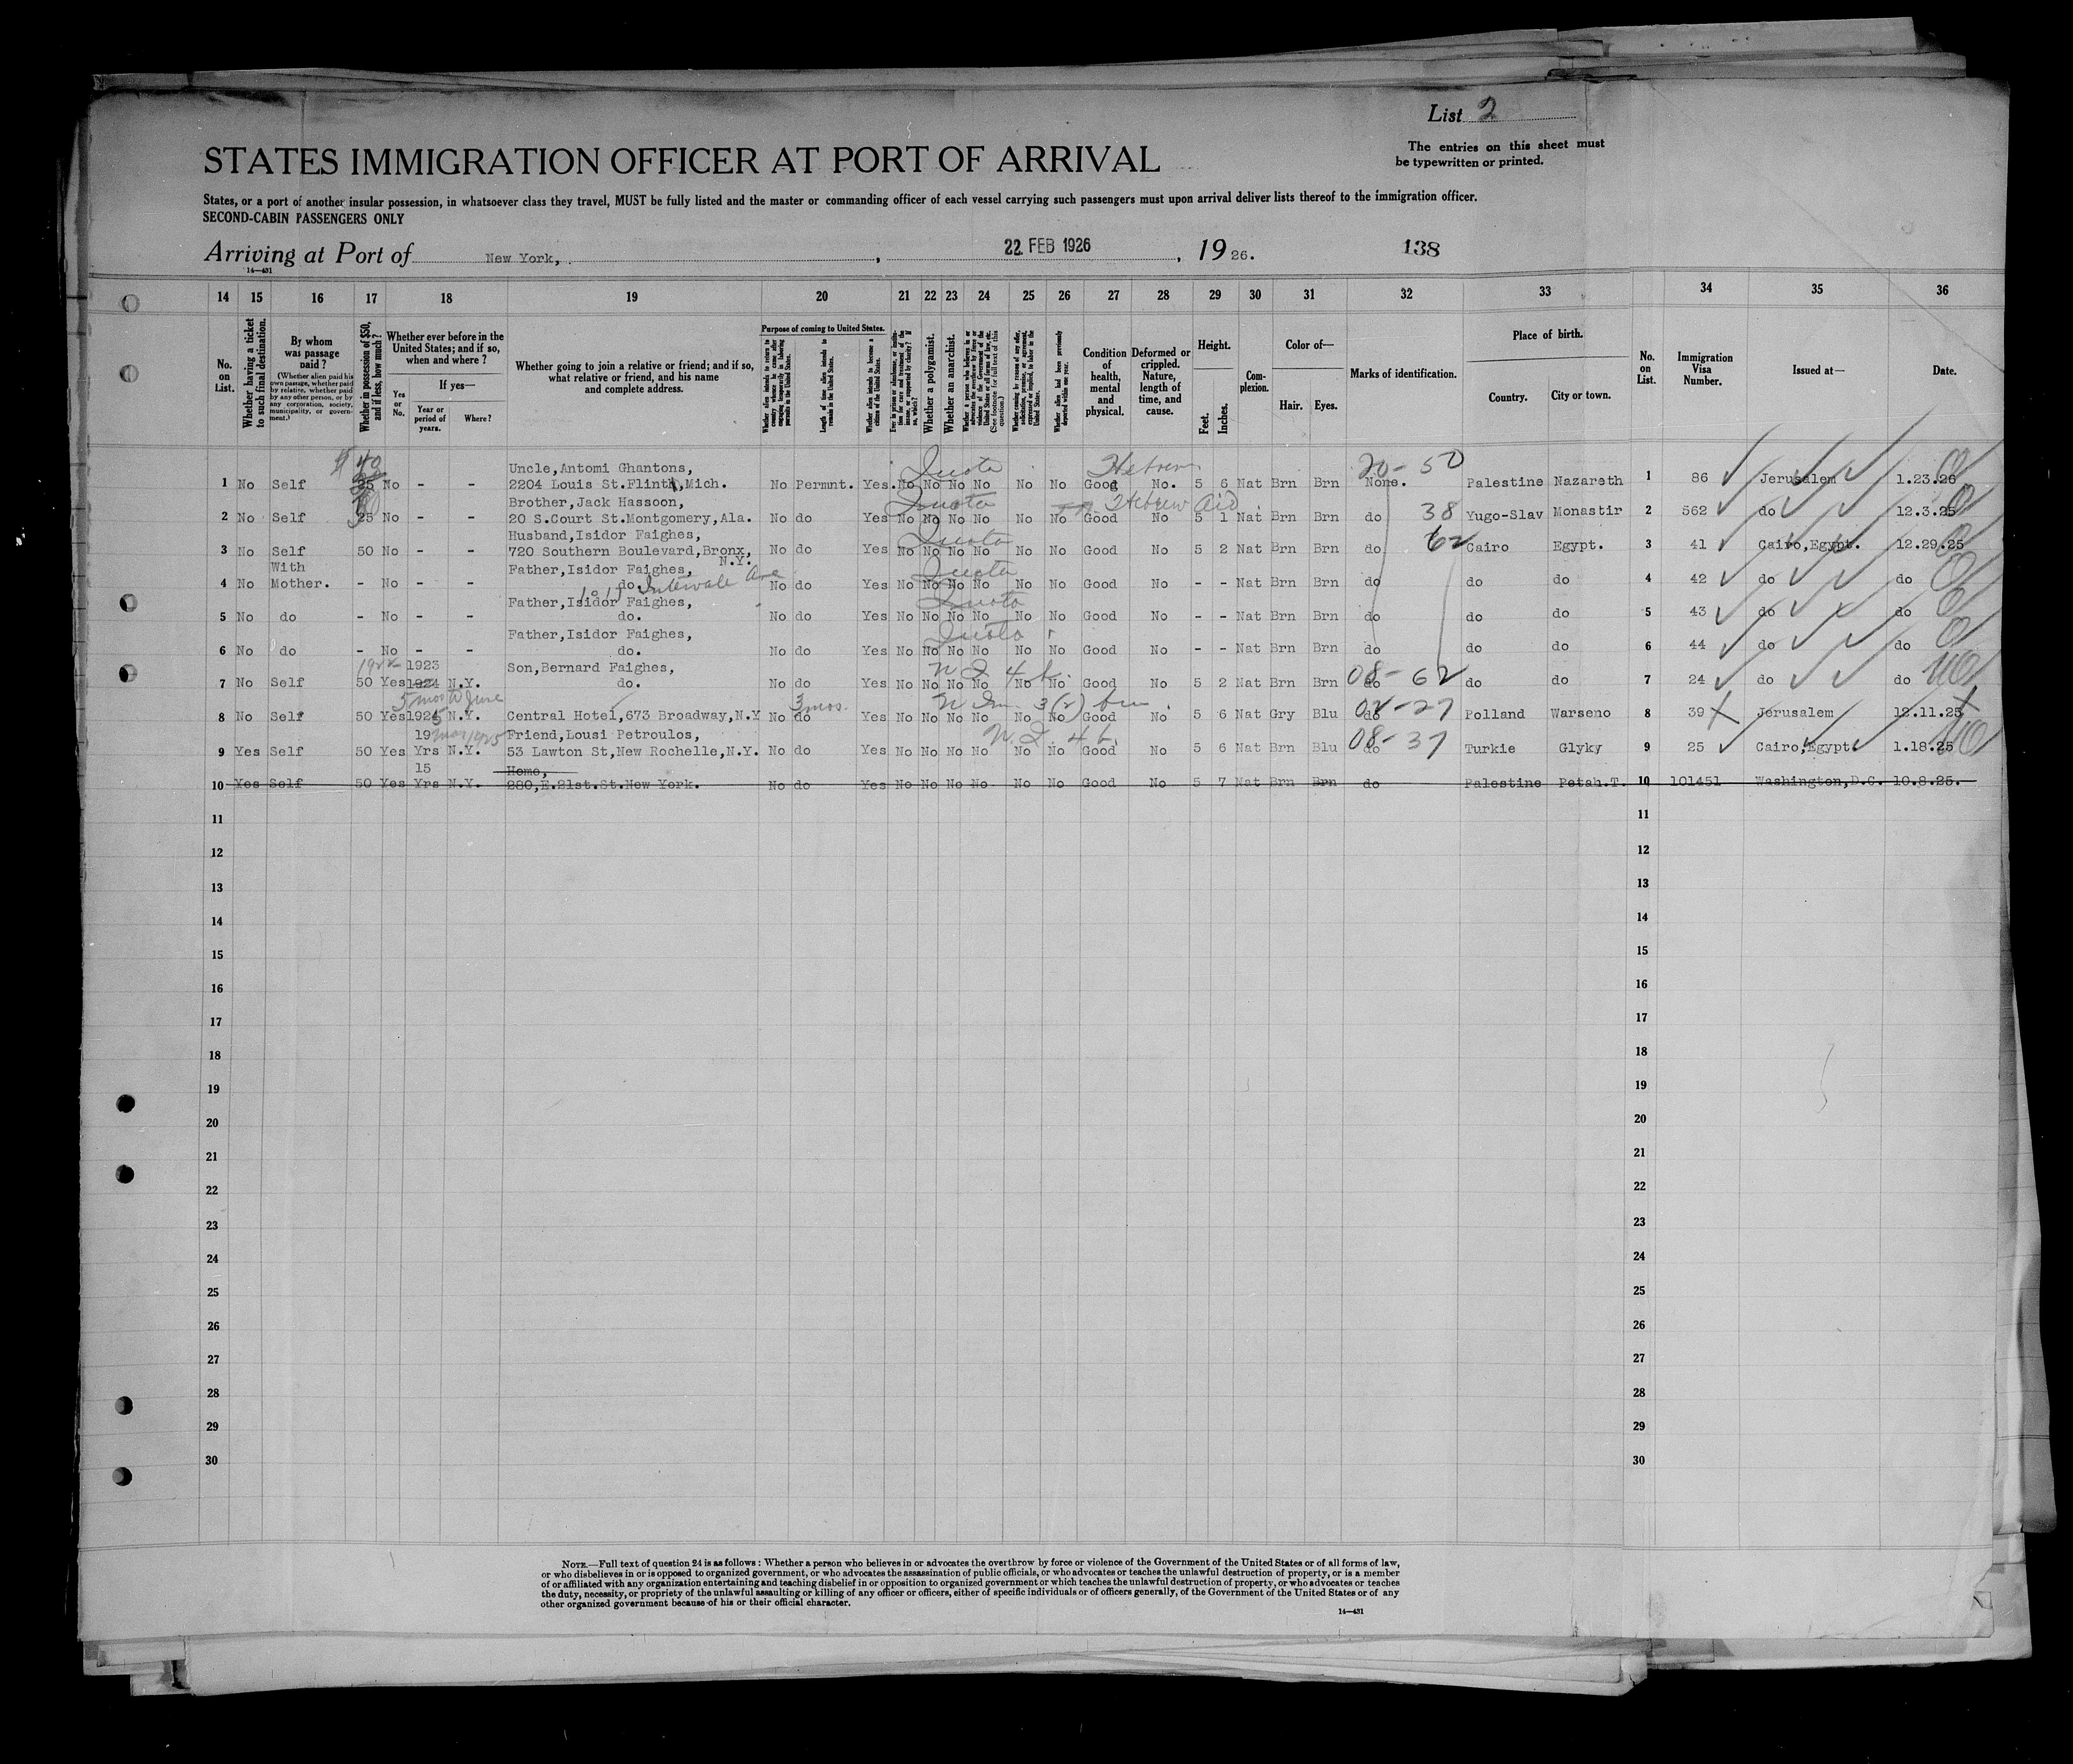 List 2
The entries on this sheet must
be typewritten or printed.
STATES IMMIGRATION OFFICER AT PORT OF ARRIVAL
States, or a port of another insular possession, in whatsoever class they travel, MUST be fully listed and the master or commanding officer of each vessel carrying such passengers must upon arrival deliver lists thereof to the immigration officer.
SECOND-CABIN PASSENGERS ONLY
Arriving at Port of New York, , 22 FEB 1926 , 19 26. 138
14—431
14 15 16 17 18 19 20 21 22 23 24 25 26 27 28 29 30 31 32 33 34 35 36
No. on List.
Whether having a ticket to such final destination.
By whom was passage paid?
(Whether alien paid his own passage, whether paid by relative, whether paid by any other person, or by any corporation, society, municipality, or government.)
Whether in possession of $50, and if less, how much?
Whether ever before in the United States; and if so, when and where?
Yes or No.
If yes—
Year or period of years.
Where?
Whether going to join a relative or friend; and if so, what relative or friend, and his name and complete address.
Purpose of coming to United States.
Length of time alien intends to remain in the United States.
Whether alien intends to become a citizen of the United States.
Whether a polygamist.
Whether an anarchist.
Condition of health, mental and physical.
Deformed or crippled. Nature, length of time, and cause.
Height.
Feet.
Inches.
Complexion.
Color of—
Hair.
Eyes.
Marks of identification.
Place of birth.
Country.
City or town.
No. on List.
Immigration Visa Number.
Issued at—
Date.
$ 40 Uncle,Antomi Ghantons, Quota Hebrew 20-50
1 No Self 35 No - - 2204 Louis St.Flinth,Mich. No Permnt. Yes. No No No No No No Good No. 5 6 Nat Brn Brn None. Palestine Nazareth 1 86 Jerusalem 1.23.26
Brother,Jack Hassoon, Quota Hebrew Aid
2 No Self 25 No - - 20 S.Court St.Montgomery,Ala. No do Yes No No No No No No Good No 5 1 Nat Brn Brn do 38 Yugo-Slav Monastir 2 562 do 12.3.25
Husband,Isidor Faighes, Quota
3 No Self 50 No - - 720 Southern Boulevard,Bronx, N.Y. No do Yes No No No No No No Good No 5 2 Nat Brn Brn do 62 Cairo Egypt. 3 41 Cairo,Egypt. 12.29.25
With Father,Isidor Faighes, Quota
4 No Mother. - No - - do. Intervale Ave No do Yes No No No No No No Good No - - Nat Brn Brn do do do 4 42 do do
Father,Isidor Faighes, Quota
5 No do - No - - do. No do Yes No No No No No No Good No - - Nat Brn Brn do do do 5 43 do do
Father,Isidor Faighes, Quota
6 No do - No - - do. No do Yes No No No No No No Good No - - Nat Brn Brn do do do 6 44 do do
1922- 1923 Son,Bernard Faighes, 08-62
7 No Self 50 Yes 1924 N.Y. do. No do Yes No No No No No No Good No 5 2 Nat Brn Brn do do do 7 24 do do
5 mos to June 3 mos.
8 No Self 50 Yes 1925 N.Y. Central Hotel,673 Broadway,N.Y No do Yes No No No No No No Good No 5 6 Nat Gry Blu do Polland Warseno 8 39 Jerusalem 12.11.25
19 Mar 1925 Friend,Lousi Petroulos, 08-37
9 Yes Self 50 Yes Yrs N.Y. 53 Lawton St,New Rochelle,N.Y. No do Yes No No No No No No Good No 5 6 Nat Brn Blu do Turkie Glyky 9 25 Cairo,Egypt. 1.18.25
15 Home,
10 Yes Self 50 Yes Yrs N.Y. 280,E.21st.St.New York. No do Yes No No No No No No Good No 5 7 Nat Brn Brn do Palestine Petah.T. 10 101451 Washington,D.C. 10.8.25.
11 11
12 12
13 13
14 14
15 15
16 16
17 17
18 18
19 19
20 20
21 21
22 22
23 23
24 24
25 25
26 26
27 27
28 28
29 29
30 30
NOTE.—Full text of question 24 is as follows: Whether a person who believes in or advocates the overthrow by force or violence of the Government of the United States or of all forms of law,
or who disbelieves in or is opposed to organized government, or who advocates the assassination of public officials, or who advocates or teaches the unlawful destruction of property, or is a member
of or affiliated with any organization entertaining and teaching disbelief in or opposition to organized government or which teaches the unlawful destruction of property, or who advocates or teaches
the duty, necessity, or propriety of the unlawful assaulting or killing of any officer or officers, either of specific individuals or of officers generally, of the Government of the United States or of any
other organized government because of his or their official character.
14—431